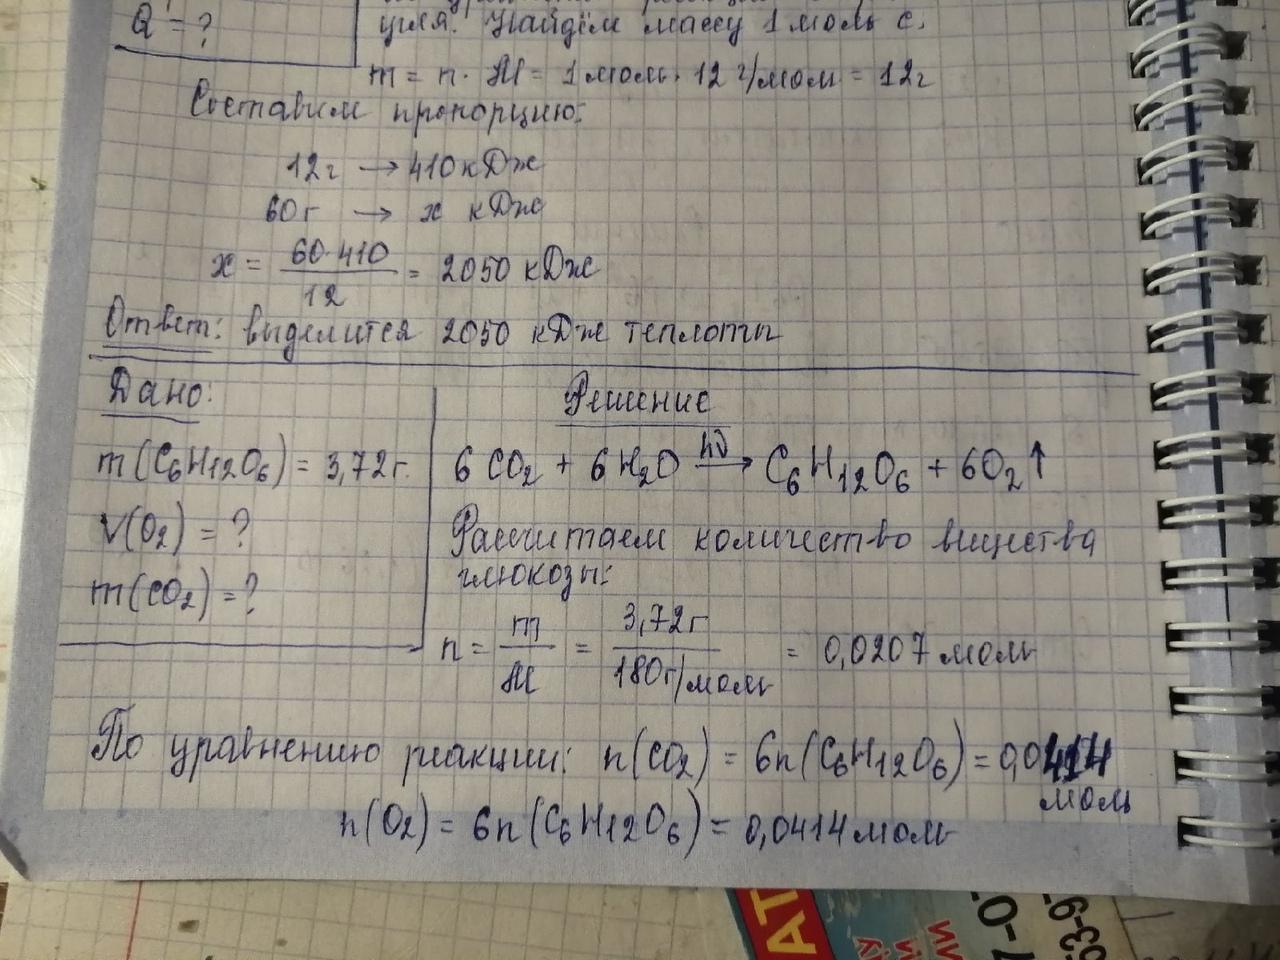 Q = ?
угля. Найдём массу 1 моль C.
m = n · M = 1 моль · 12 г/мол = 12г
Составим пропорцию:
12г → 410 кДж
60г → x кДж
x = 60·410 / 12 = 2050 кДж
Ответ: выделится 2050 кДж теплоты
Дано:
m(C6H12O6) = 3,72г.
V(O2) = ?
m(CO2) = ?
Решение
6CO2 + 6H2O hν → C6H12O6 + 6O2↑
Рассчитаем количество вещества
глюкозы:
n = m / M = 3,72г / 180г/моль = 0,0207 моль
По уравнению реакции: n(CO2) = 6n(C6H12O6) = 0,0414
моль
n(O2) = 6n(C6H12O6) = 0,0414 моль
АТ
7-0
53-9